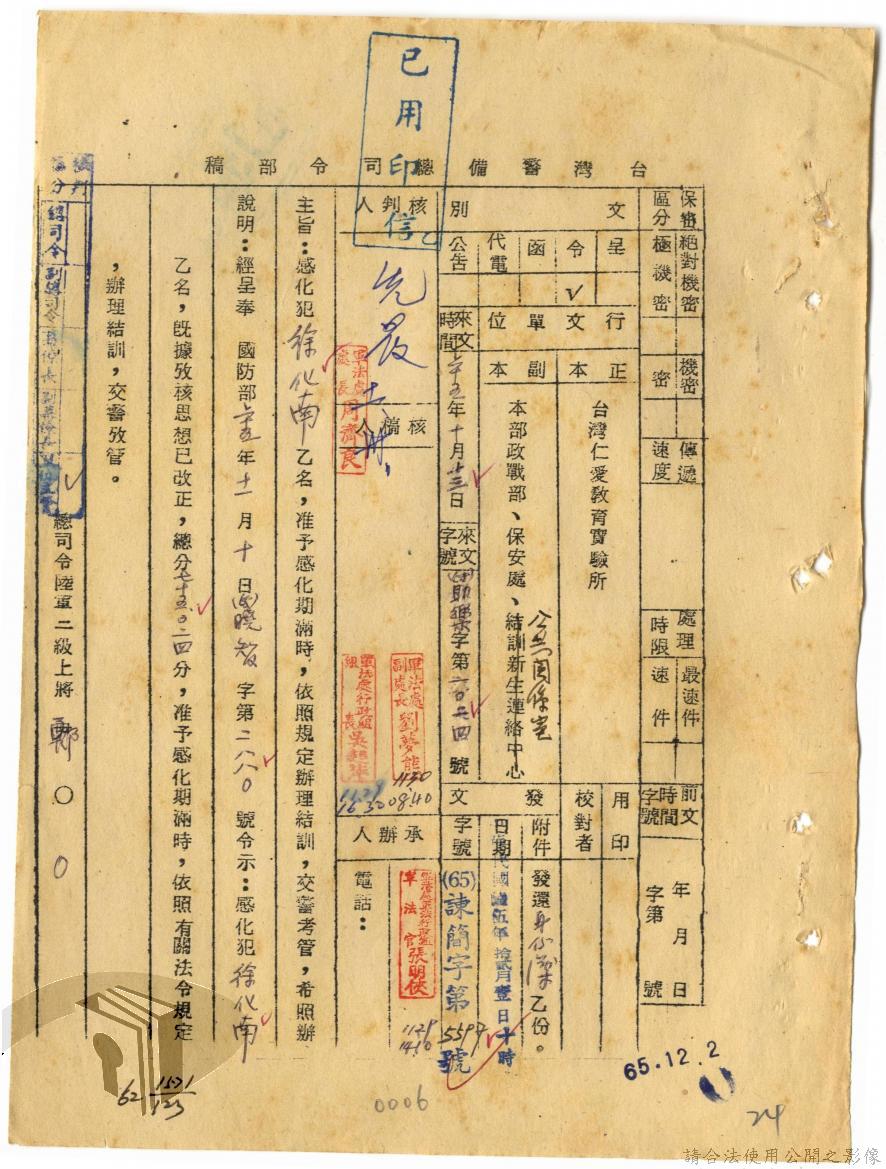 已用印信
台灣警備總司令部稿
保密區分
絕對機密
極機密
機密
密
傳遞速度
處理時限
最速件
速件
前文時間字號
年月日
字第 號
文別
呈
令
✓
函
代電
公告
行文單位
正本
台灣仁愛教育實驗所
副本
本部政戰部、保安處、結訓新生連絡中心
用印
校對者
發文
附件
發還身份證乙份。
日期
中華民國陸伍年拾貳月壹日十時
字號
(65)諫簡字第5597號
來文時間
六十五年十月廿三日
來文字號
字第二六〇二四號
核判人
乙
核稿人
軍法處處長周濟良
軍法處副處長劉夢熊
1130
0840
軍法處行政組組長
1129
1630
承辦人
電話：
軍法官張明俠
1129
1410
主旨：感化犯徐化南乙名，准予感化期滿時，依照規定辦理結訓，交警考管，希照辦
說明：經呈奉 國防部六十五年十一月十日 曉智 字第二八八〇 號令示：感化犯徐化南
乙名，既據攷核思想已改正，總分七十五．〇二四分，准予感化期滿時，依照有關法令規定
，辦理結訓，交警攷管。
總司令陸軍二級上將 鄭〇〇
總司令
副總司令
參謀長
65.12.2
62 1571/123
0006
24
請合法使用公開之影像